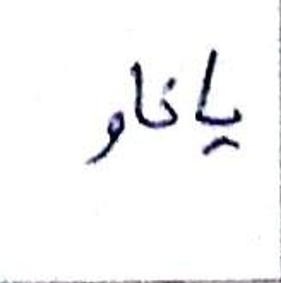 ياناو